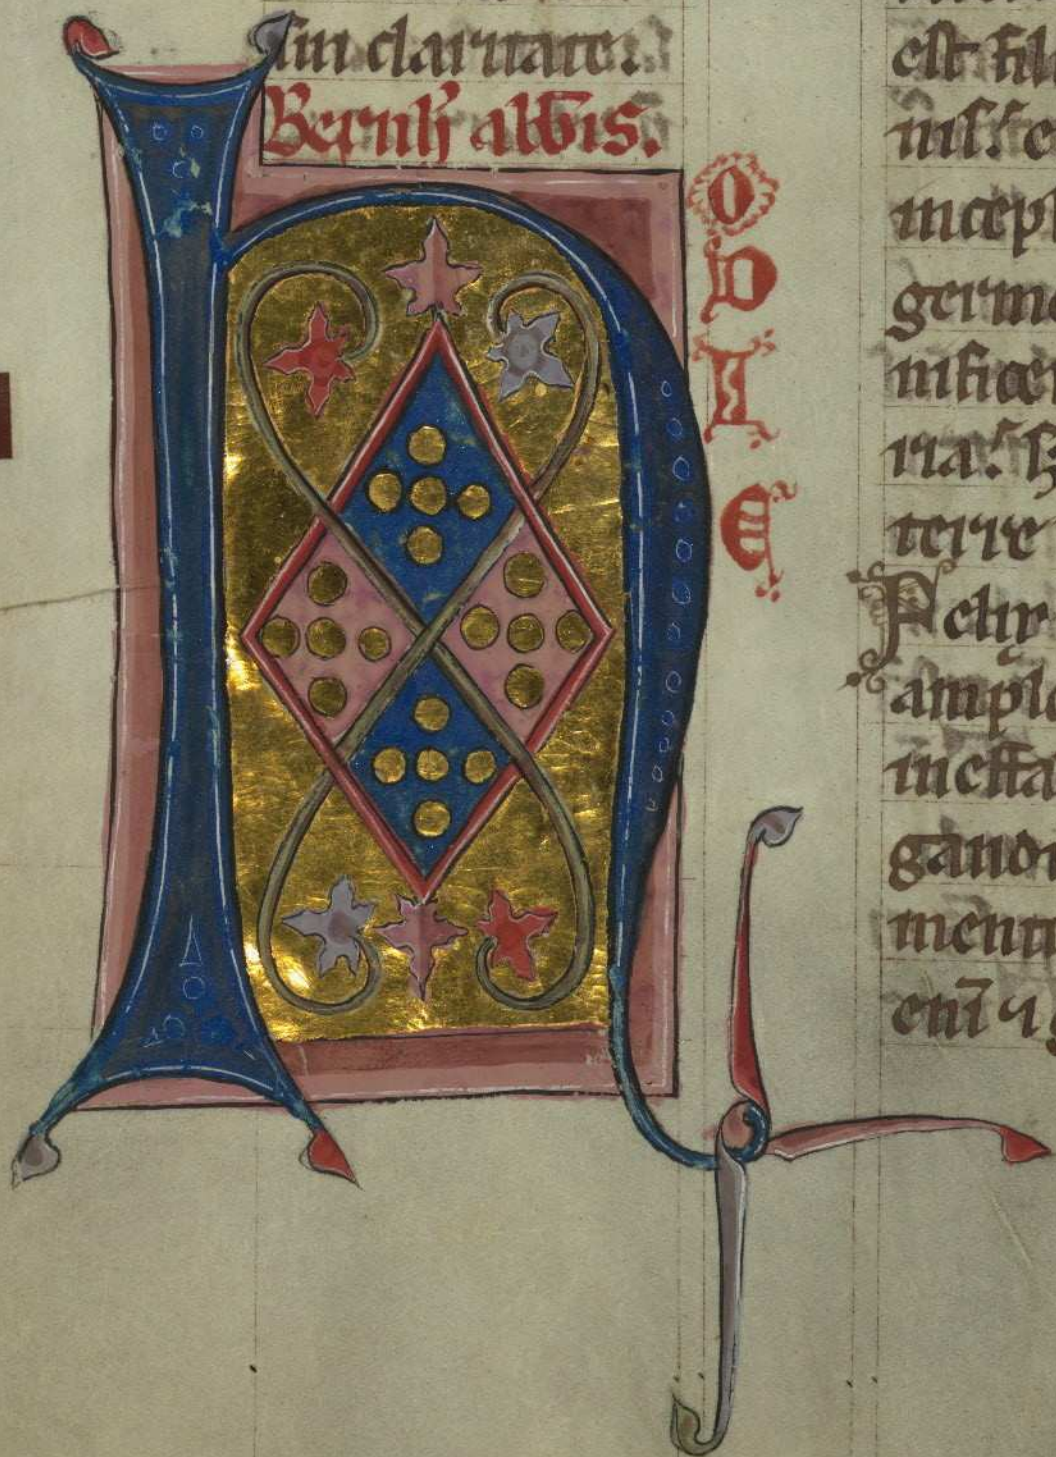 in claritate.
Bernh abbis.
H
O
D
I
E
est fil
nis. e
incep
germ
nifice
ria. h
terre
P
ampl
ineffa
gand
ment
eni